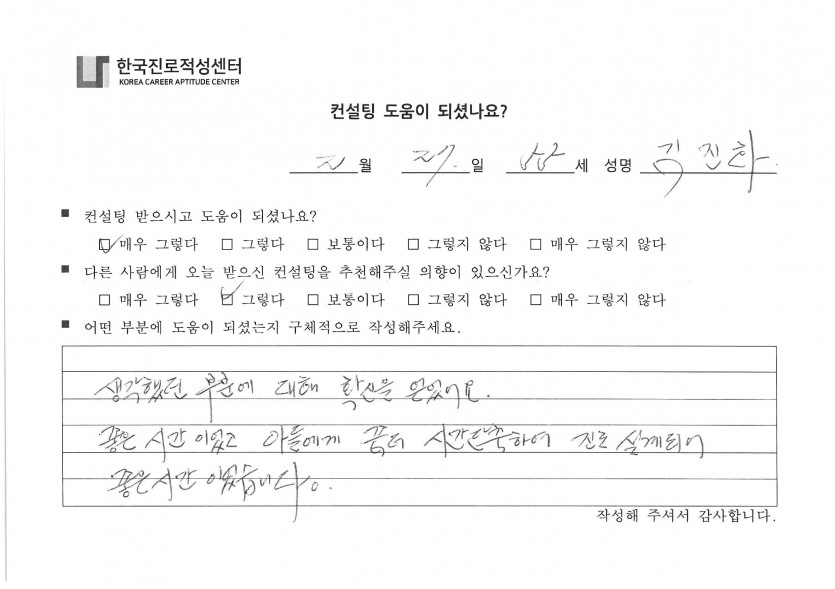 한국진로적성센터
KOREA CAREER APTITUDE CENTER
컨설팅 도움이 되셨나요?
월 27. 일 세 성명 김진하
■ 컨설팅 받으시고 도움이 되셨나요?
☑ 매우 그렇다 □ 그렇다 □ 보통이다 □ 그렇지 않다 □ 매우 그렇지 않다
■ 다른 사람에게 오늘 받으신 컨설팅을 추천해주실 의향이 있으신가요?
□ 매우 그렇다 ☑ 그렇다 □ 보통이다 □ 그렇지 않다 □ 매우 그렇지 않다
■ 어떤 부분에 도움이 되셨는지 구체적으로 작성해주세요.
생각했던 부분에 대해 확신을 얻었어요.
좋은 시간이었고 아들에게 시간단축하여 진로 설계되어
좋은 시간이었습니다.
작성해 주셔서 감사합니다.